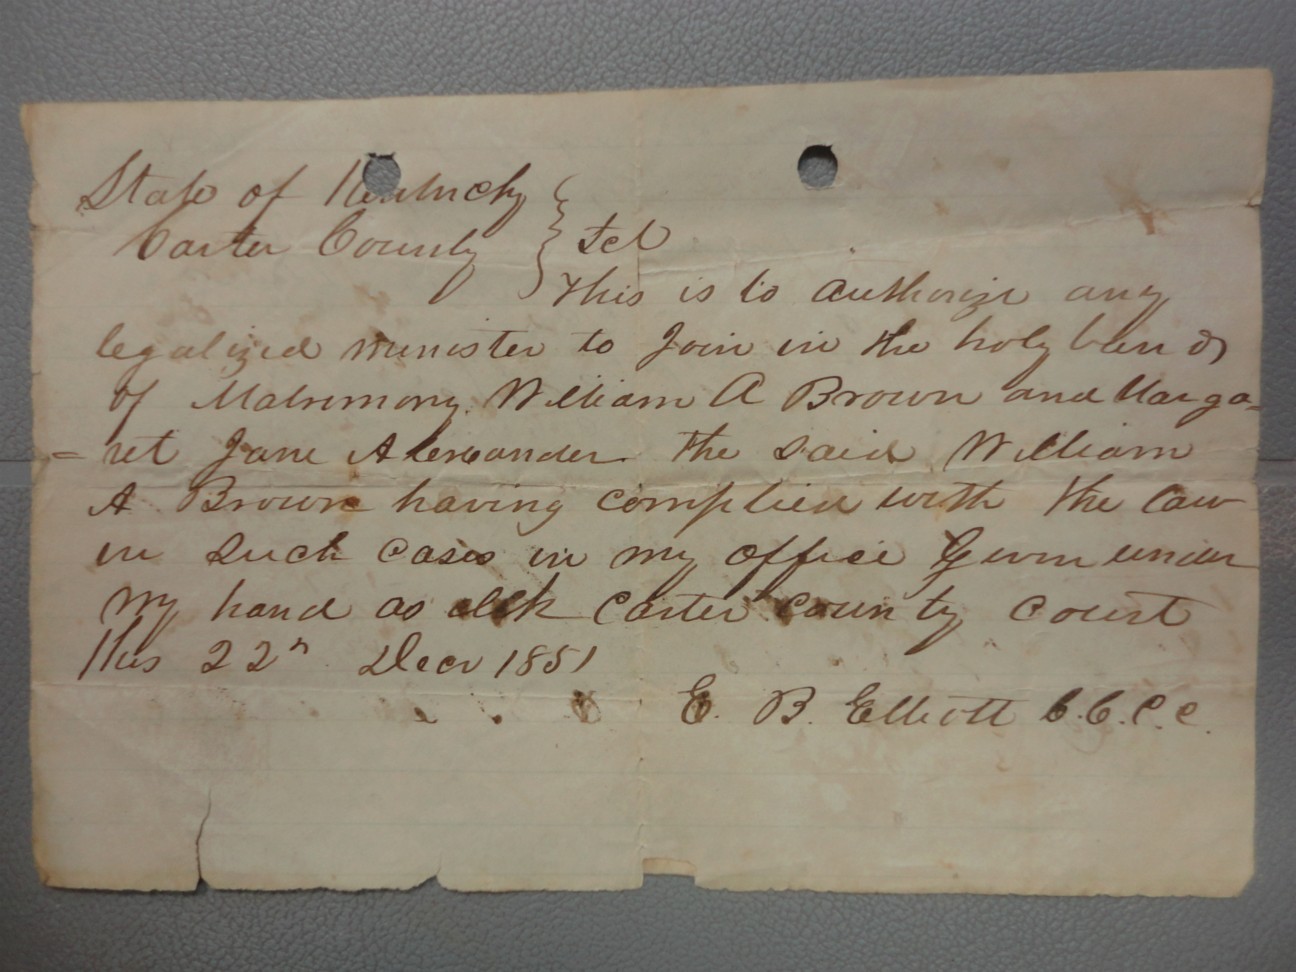 State of Kentucky
Carter County } Sct
This is to authorize any
legalized minister to Join in the holy bands
of Matrimony William A Brown and Marga-
=ret Jane Alexander. The said William
A Brown having complied with the law
in such cases in my office Given under
my hand as clk Carter county court
this 22n Decr 1851
E. B. Elliott C.C.C.C.